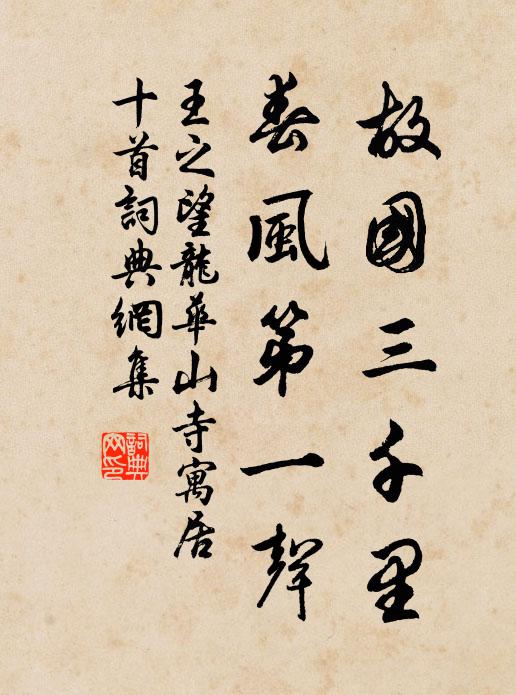 故國三千里
春風第一聲
王之望龍華山寺寓居
十首詞典網集
詞典网印